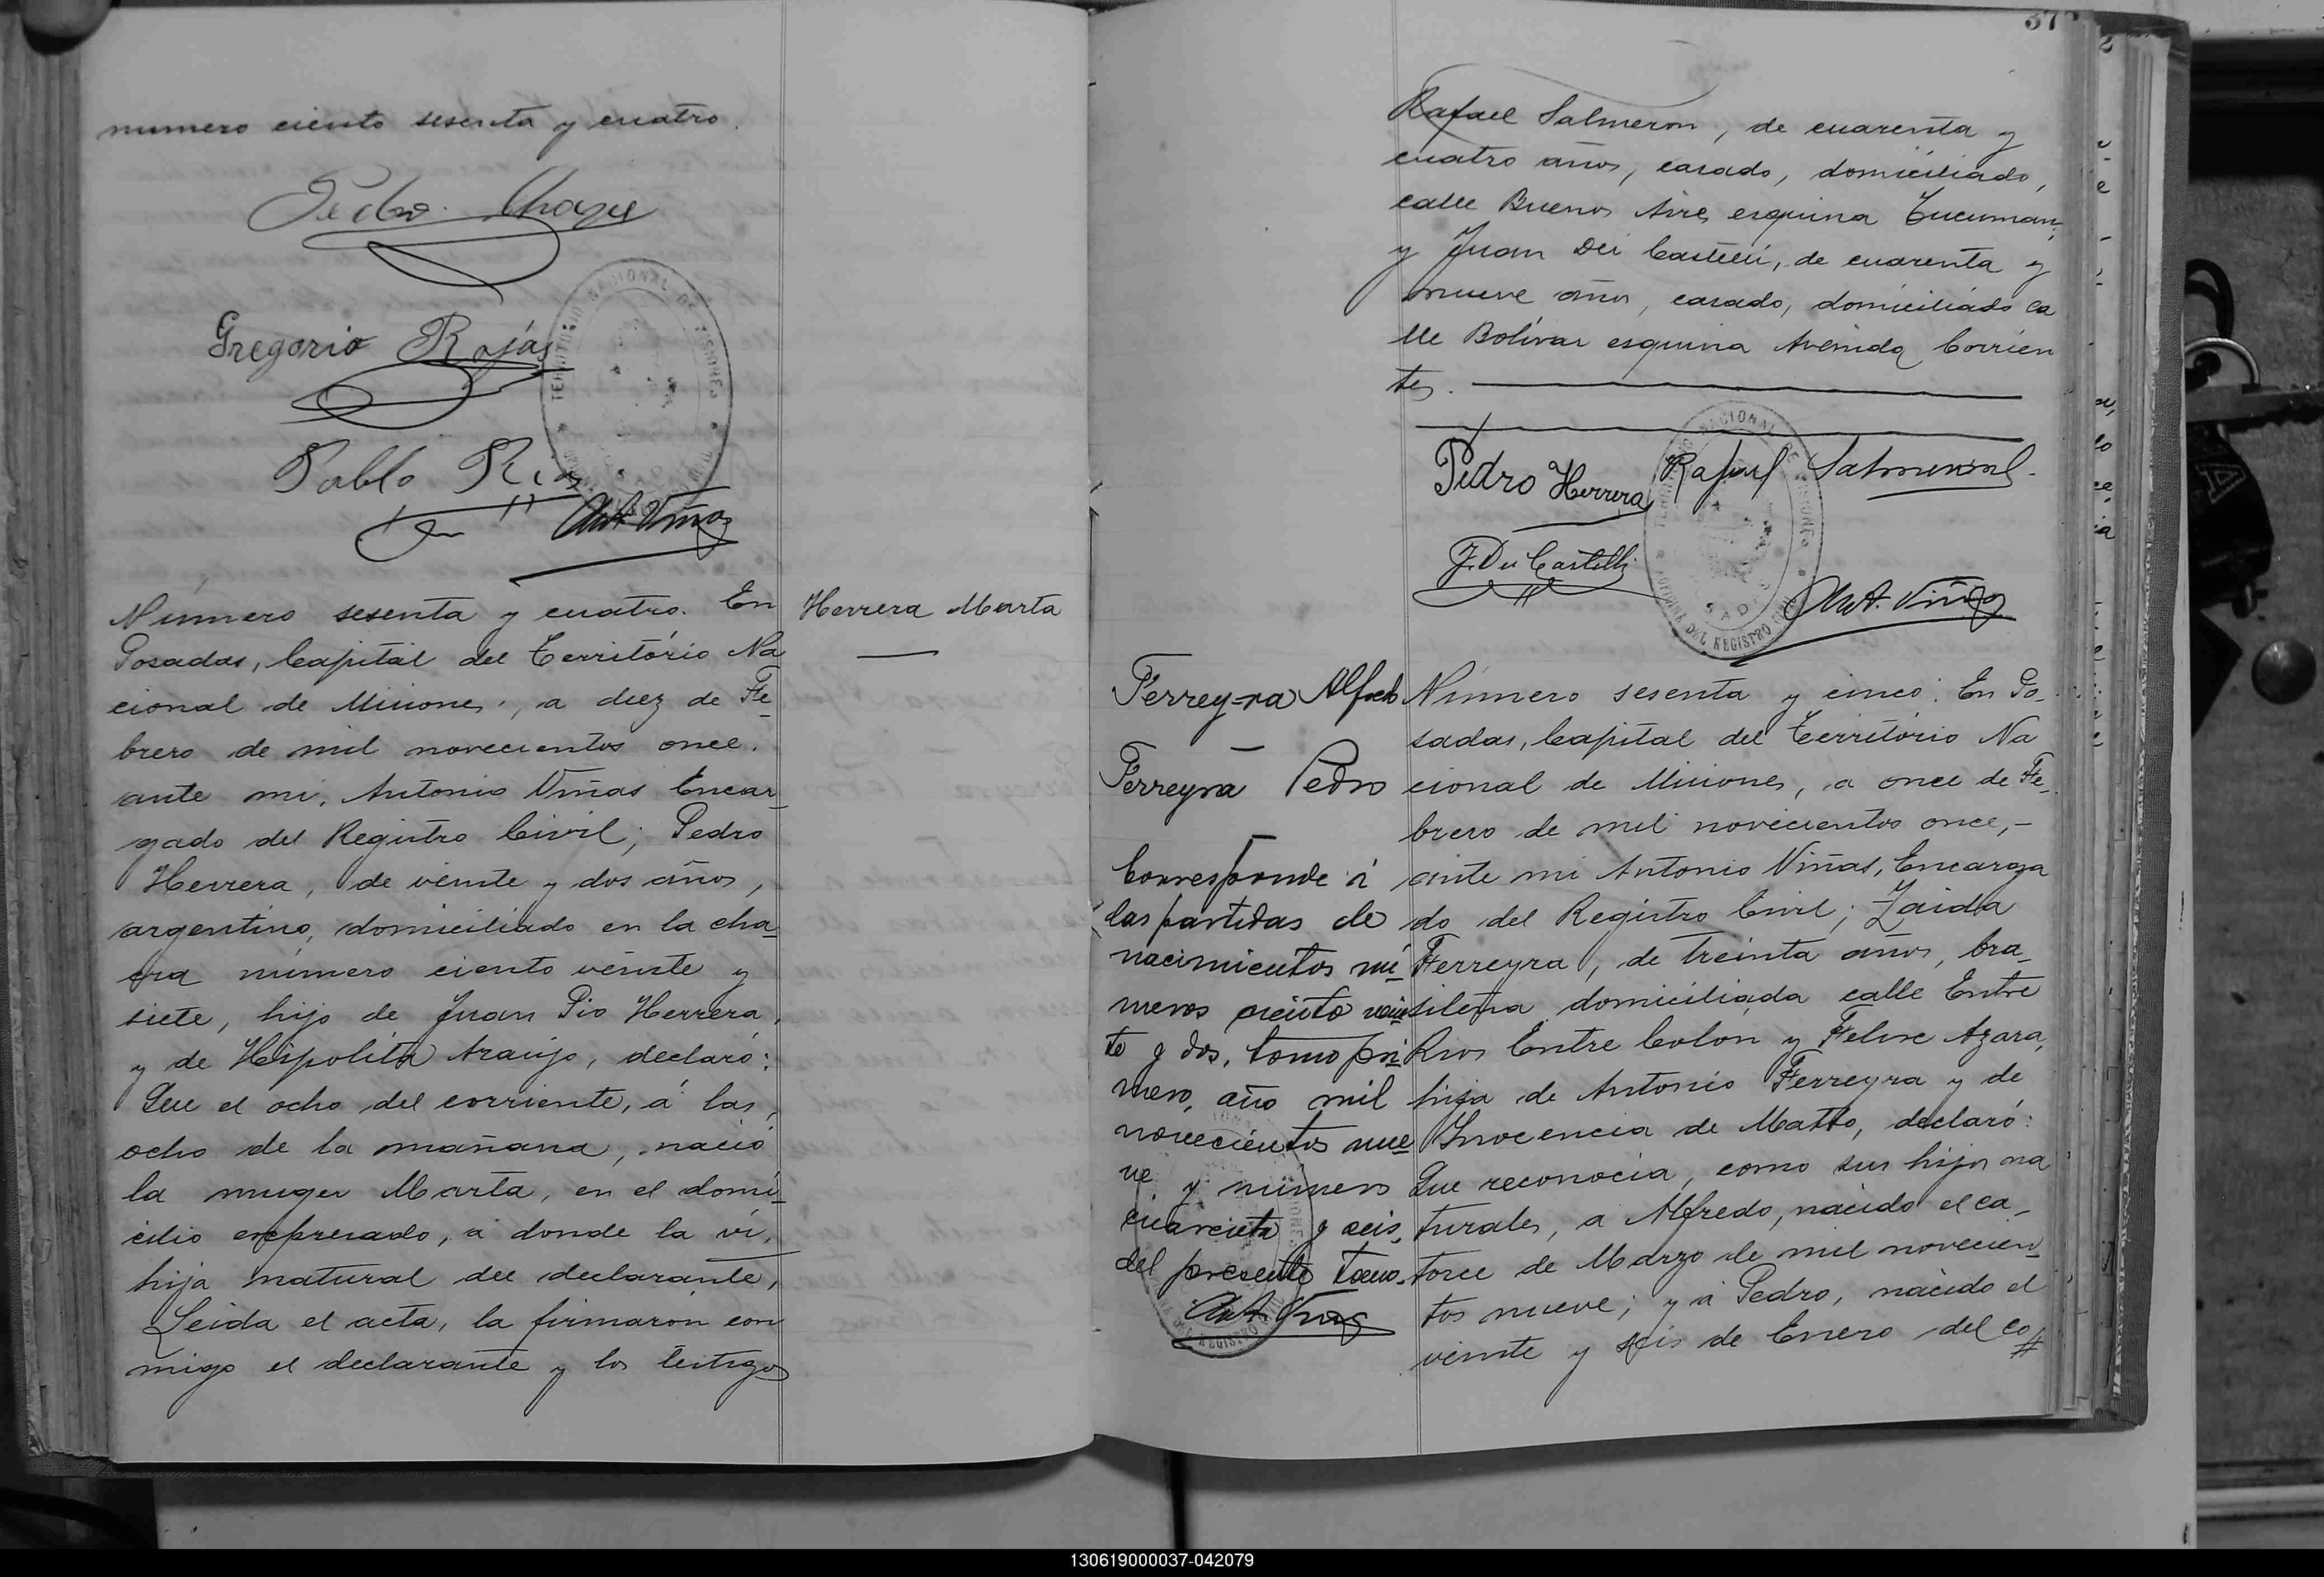 numero ciento sesenta y cuatro.
Pedro
Gregorio Rojas
TERRITORIO NACIONAL DE MISIONES
Pablo Rios
Ant Viñas
Número sesenta y cuatro. En
Posadas, Capital del Território Na
cional de Misiones, a diez de Fe_
brero de mil novecientos once.
ante mi, Antonio Viñas Encar_
gado del Registro Civil; Pedro
Herrera, de veinte y dos años,
argentino, domiciliado en la cha_
cra número ciento veinte y
siete, hijo de Juan Pio Herrera,
y de Hipolita Araujo, declaró:
Que el ocho del corriente, á las,
ocho de la mañana, nació
la muger Marta, en el domi_
cilio expresado, a donde la ví,
hija natural del declarante,
Leida el acta, la firmaron con
migo el declarante y los testigos
Herrera Marta
37
Rafael Salmeron, de cuarenta y
cuatro años, casado, domiciliado,
calle Buenos Aires esquina Tucuman;
y Juan Dei Castelli, de cuarenta y
nueve años, casado, domiciliado ca
lle Bolívar esquina Avenida Corrien
tes.
Pedro Herrera Rafael Salmeron
TERRITORIO NACIONAL DE MISIONES
OFICINA DEL REGISTRO CIVIL
POSADAS
J. Dei Castelli
Ant. Viñas
Ferrey=ra Alfredo
Ferreyra Pedro
Corresponde á
las partidas de
nacimientos nú
meros ciento vein
te y dos, tomo pri
mero, año mil
novecientos nue
ve y numero
cuarenta y seis,
del presente tomo.
Ant Viñas
Número sesenta y cinco. En Po_
sadas, Capital del Território Na
cional de Misiones, a once de Fe_
brero de mil novecientos once,-
ante mi Antonio Viñas, Encarga
do del Registro Civil; Zaida
Ferreyra, de treinta años, bra_
sileña domiciliada calle Entre
Rios Entre Colon y Felix Azara,
hija de Antonio Ferreyra y de
Inocencia de Matto, declaró:
Que reconocia, como sus hijos na
turales, a Alfredo, nacido el ca_
torce de Marzo de mil novecien
tos nueve; y á Pedro, nacido el
veinte y seis de Enero del co
130619000037-042079